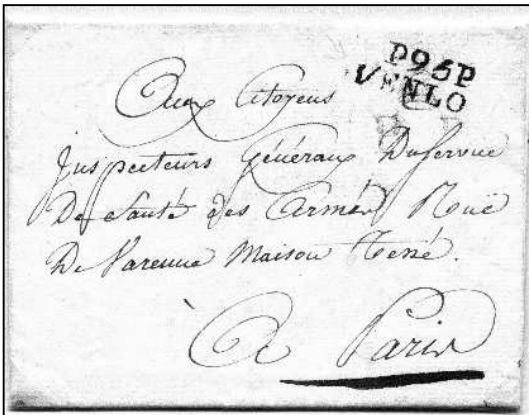 P95P
VENLO
Aux Citoyens
Inspecteurs Généraux Du Service
De Santé des Armées Ruë
De Varenne Maison Tessé.
A Paris